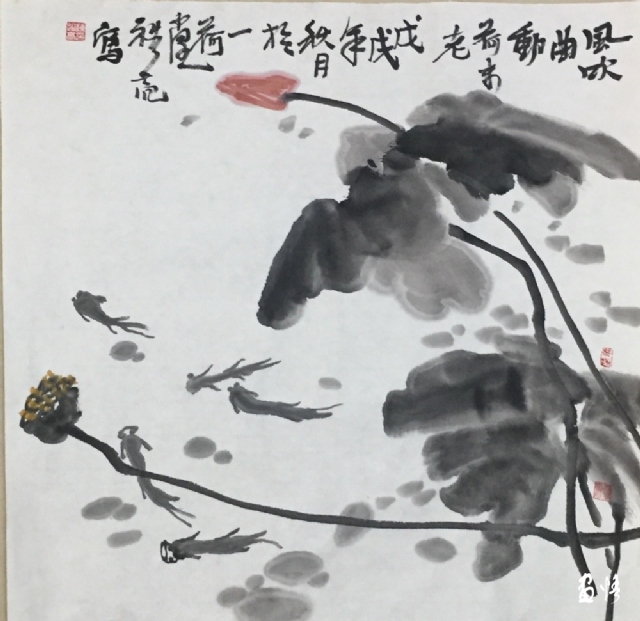 風吹曲動荷未老戊戌年秋月於一荷堂禮亮寫